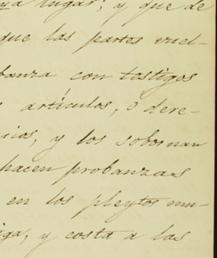 ya lugar; y que de
que las partes vuel-
banza con testigos
articulos, o dere-
cios, y los sobornan
hacen probanzas
en los pleytos mu-
iga; y costa a las